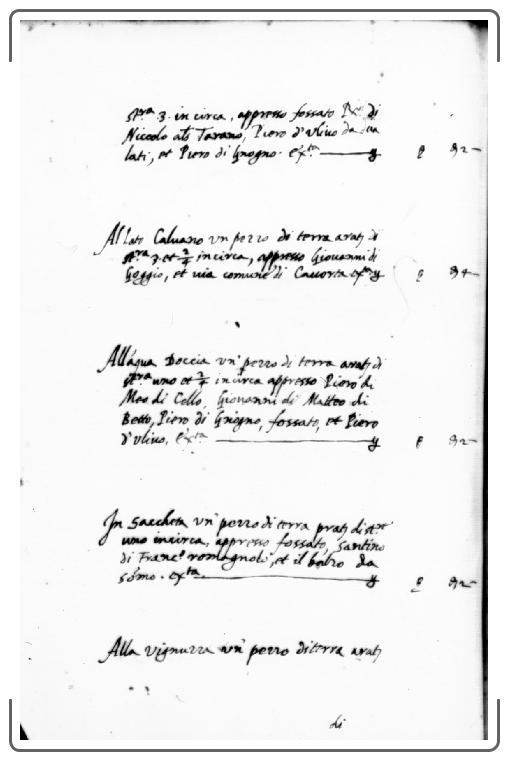 st.ra 3. in circa, appresso fossato di
Niccolo als Tarano, Piero d'ulivo da
lati, et Piero di Gnogno. exta
Al lato Caluano un pezzo di terra arat. di
st.ra 3 et 2/4 incirca, appresso Giovanni di
Goggio, et via comune di Cavorta exta
All'aqua Doccia un pezzo di terra arat. di
st.ra uno et 2/4 incirca appresso Piero di
Meo di Cello, Giovanni di Matteo di
Betto, Piero di Gnogno, fossato, et Piero
d'ulivo, exta
In Saccheta un pezzo di terra prat. di st.re
uno incirca, appresso fossato, Santino
di Franc.o romagnolo, et il da
somo. exta
Alla vignuzza un pezzo di terra arat.
di